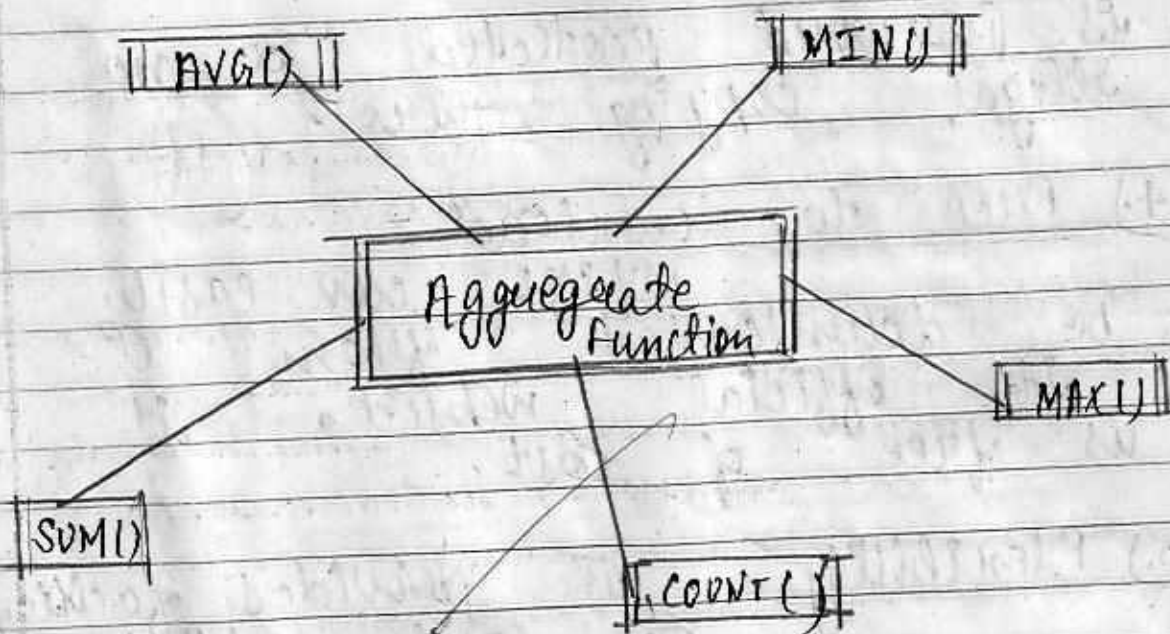 AVG()
MIN()
Aggregate
function
MAX()
SUM()
COUNT()